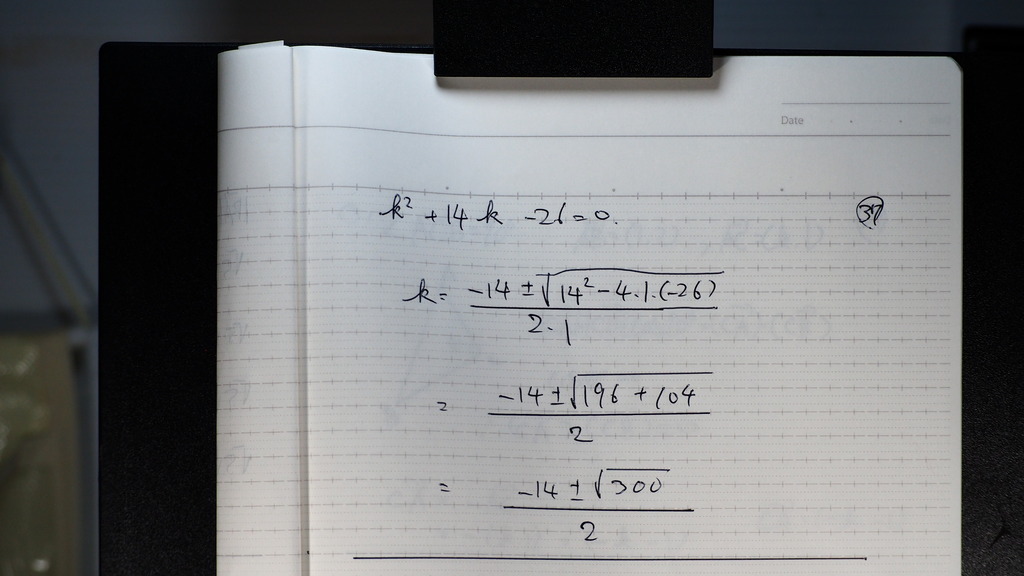 Date
k² + 14k - 26 = 0. 37
k = (-14 ± √(14² - 4.1.(-26))) / 2.1
= (-14 ± √(196 + 104)) / 2
= (-14 ± √300) / 2